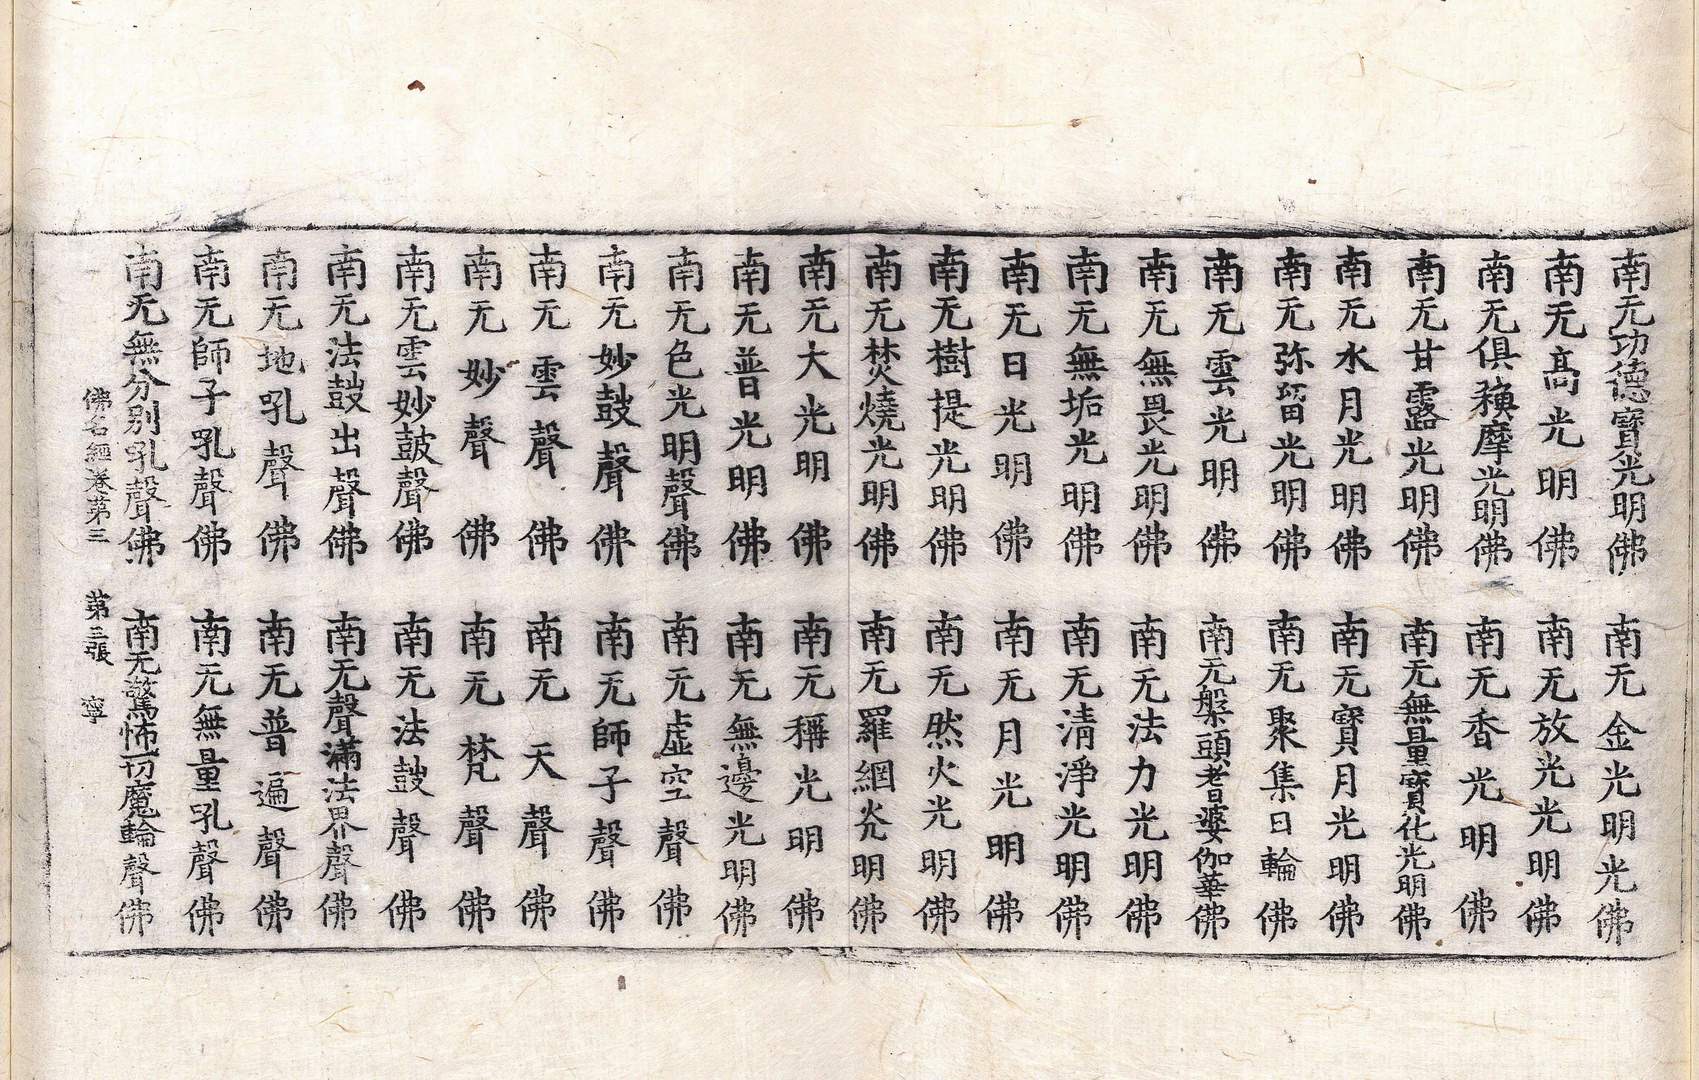 南无功德寶光明佛　南无金光明光佛
南无高光明佛　南无放光光明佛
南无俱積摩光明佛　南无香光明佛
南无甘露光明佛　南无無量寶化光明佛
南无水月光明佛　南无寶月光明佛
南无弥留光明佛　南无聚集日輪佛
南无雲光明佛　南无槃頭耆婆伽華佛
南无無畏光明佛　南无法力光明佛
南无無垢光明佛　南无清淨光明佛
南无日光明佛　南无月光明佛
南无樹提光明佛　南无然火光明佛
南无焚燒光明佛　南无羅網炎明佛
南无大光明佛　南无稱光明佛
南无普光明佛　南无無邊光明佛
南无色光明聲佛　南无虛空聲佛
南无妙鼓聲佛　南无師子聲佛
南无雲聲佛　南无天聲佛
南无妙聲佛　南无梵聲佛
南无雲妙鼓聲佛　南无法鼓聲佛
南无法鼓出聲佛　南无聲滿法界聲佛
南无地吼聲佛　南无普遍聲佛
南无師子吼聲佛　南无無量吼聲佛
南无無分別吼聲佛　南无驚怖一切魔輪聲佛
佛名經卷第三　第三張　寧